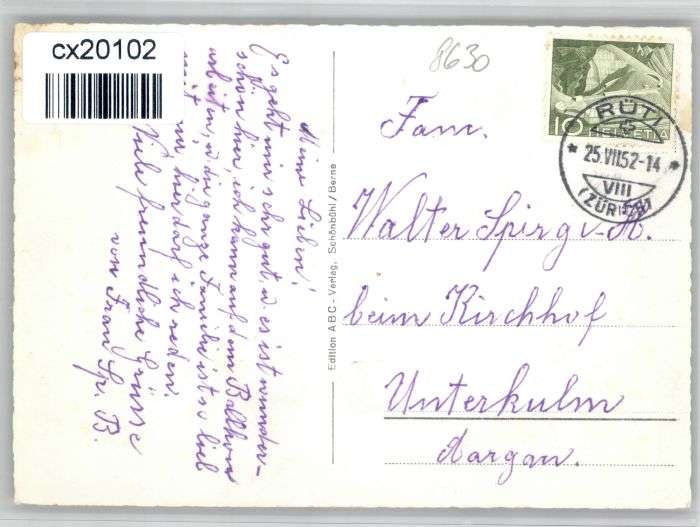 cx20102
8630
Meine Lieben!
Es geht mir sehr gut, u. es ist wunder-
schön hier, ich kann auf dem
arbeiten, u. die ganze Familie ist so lieb
mit
ich reden.
Viele freundliche Grüsse
von Frau Sp. B.
Edition ABC - Verlag, Schönbühl / Berne
10
HELVETIA
RÜTI
25.VII.52-14
VIII
(ZÜRICH)
Fam.
Walter Spirgi-A.
beim Kirchhof
Unterkulm
Aargau.